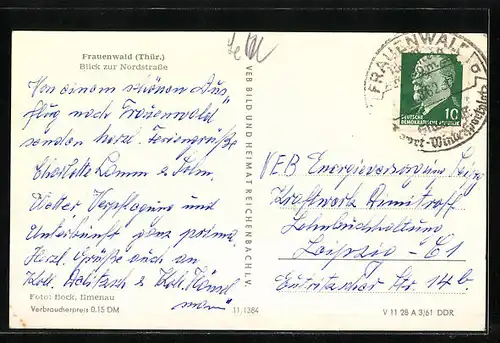 Frauenwald (Thür.)
Blick zur Nordstraße
Von einem schönen Aus-
flug nach Frauenwald
senden herzl. Feriengrüße
Charlotte Lamm &
Wetter Verpflegung und
Unterkunft ganz prima.
Herzl. Grüße auch an
Koll. & Koll.
Foto: Bock, Ilmenau
Verbraucherpreis 0.15 DM
11/1384
VEB BILD UND HEIMAT REICHENBACH I. V.
FRAUENWALD
10
DEUTSCHE
DEMOKRATISCHE REPUBLIK
VEB Energieversorgung Leipzig
Kraftwerk Dimitroff
Lohnbuchhaltung
Leipzig - C1
Eutritzscher Str. 14b.
V 11 28 A 3/61 DDR